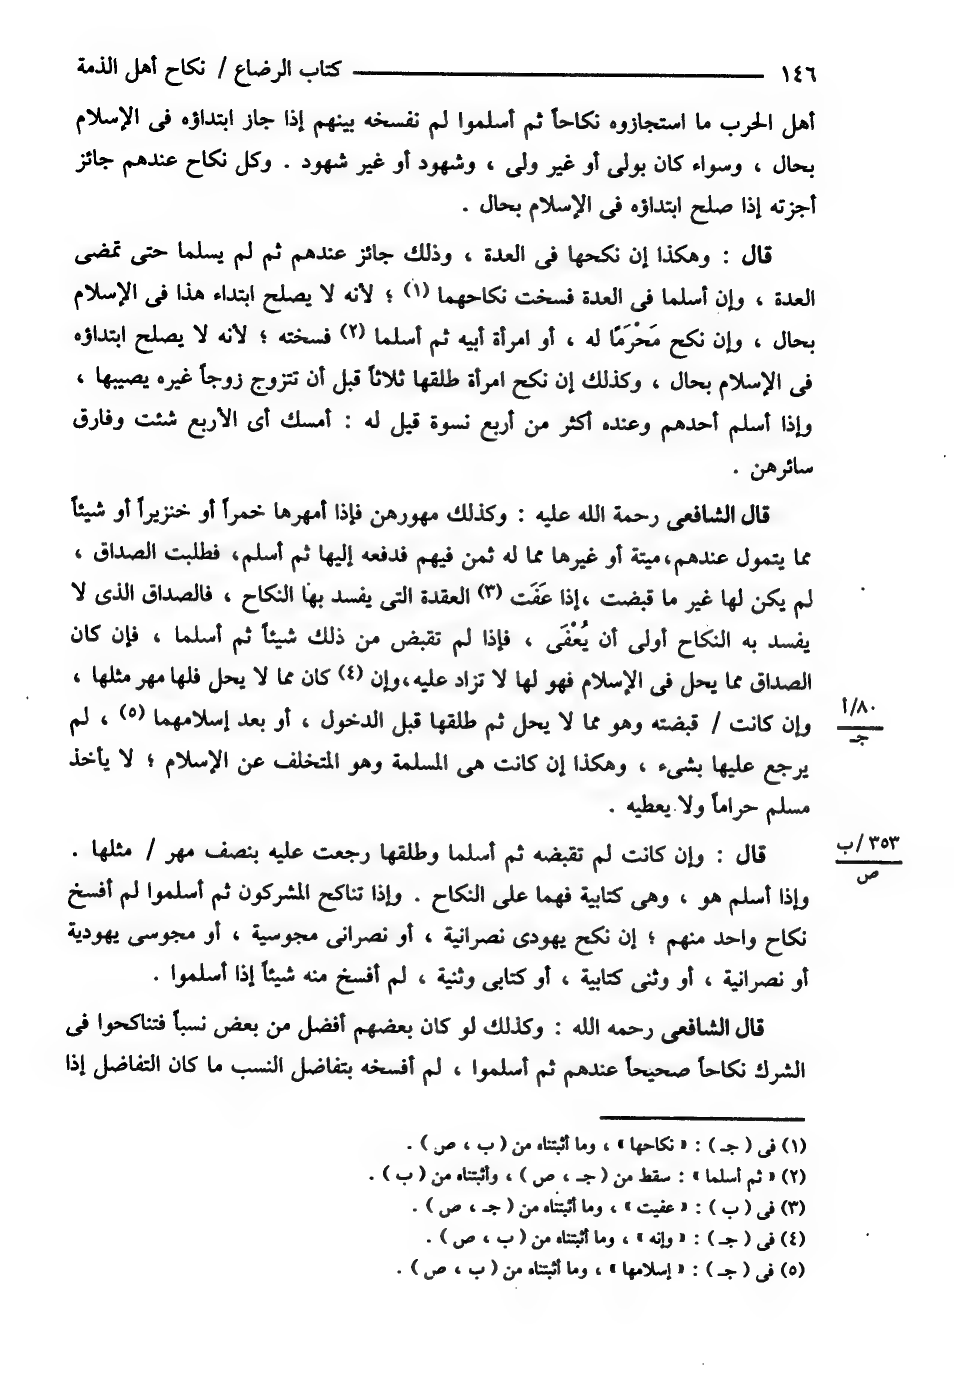 ١٤٦ ــــــــــــــــ كتاب الرضاع / نكاح أهل الذمة
أهل الحرب ما استجازوه نكاحاً ثم أسلموا لم نفسخه بينهم إذا جاز ابتداؤه فى الإسلام
بحال ، وسواء كان بولى أو غير ولى ، وشهود أو غير شهود . وكل نكاح عندهم جائز
أجزته إذا صلح ابتداؤه فى الإسلام بحال .
قال : وهكذا إن نكحها فى العدة ، وذلك جائز عندهم ثم لم يسلما حتى تمضى
العدة ، وإن أسلما فى العدة فسخت نكاحهما (١) ؛ لأنه لا يصلح ابتداء هذا فى الإسلام
بحال ، وإن نكح مَحْرَمًا له ، أو امرأة أبيه ثم أسلما (٢) فسخته ؛ لأنه لا يصلح ابتداؤه
فى الإسلام بحال ، وكذلك إن نكح امرأة طلقها ثلاثاً قبل أن تتزوج زوجاً غيره يصيبها ،
وإذا أسلم أحدهم وعنده أكثر من أربع نسوة قيل له : أمسك أى الأربع شئت وفارق
سائرهن .
قال الشافعى رحمة الله عليه : وكذلك مهورهن فإذا أمهرها خمراً أو خنزيراً أو شيئاً
مما يتمول عندهم،ميتة أو غيرها مما له ثمن فيهم فدفعه إليها ثم أسلم، فطلبت الصداق ،
لم يكن لها غير ما قبضت ،إذا عَفَت (٣) العقدة التى يفسد بها النكاح ، فالصداق الذى لا
يفسد به النكاح أولى أن يُعْفَى ، فإذا لم تقبض من ذلك شيئاً ثم أسلما ، فإن كان
الصداق مما يحل فى الإسلام فهو لها لا تزاد عليه،وإن (٤) كان مما لا يحل فلها مهر مثلها ،
٨٠/أ
جـ
وإن كانت / قبضته وهو مما لا يحل ثم طلقها قبل الدخول ، أو بعد إسلامهما (٥) ، لم
يرجع عليها بشىء ، وهكذا إن كانت هى المسلمة وهو المتخلف عن الإسلام ؛ لا يأخذ
مسلم حراماً ولا يعطيه .
٣٥٣/ب
ص
قال : وإن كانت لم تقبضه ثم أسلما وطلقها رجعت عليه بنصف مهر / مثلها .
وإذا أسلم هو ، وهى كتابية فهما على النكاح . وإذا تناكح المشركون ثم أسلموا لم أفسخ
نكاح واحد منهم ؛ إن نكح يهودى نصرانية ، أو نصرانى مجوسية ، أو مجوسى يهودية
أو نصرانية ، أو وثنى كتابية ، أو كتابى وثنية ، لم أفسخ منه شيئاً إذا أسلموا .
قال الشافعى رحمه الله : وكذلك لو كان بعضهم أفضل من بعض نسباً فتناكحوا فى
الشرك نكاحاً صحيحاً عندهم ثم أسلموا ، لم أفسخه بتفاضل النسب ما كان التفاضل إذا
(١) فى ( جـ ) : « نكاحها » ، وما أثبتناه من ( ب ، ص ) .
(٢) « ثم أسلما » : سقط من ( جـ ، ص ) ، وأثبتناه من ( ب ) .
(٣) فى ( ب ) : « عفيت » ، وما أثبتناه من ( جـ ، ص ) .
(٤) فى ( جـ ) : « وإنه » ، وما أثبتناه من ( ب ، ص ) .
(٥) فى ( جـ ) : « إسلامها » ، وما أثبتناه من ( ب ، ص ) .